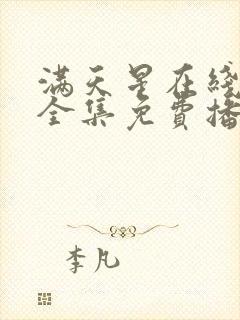 满天星在线
全集免費播
李凡